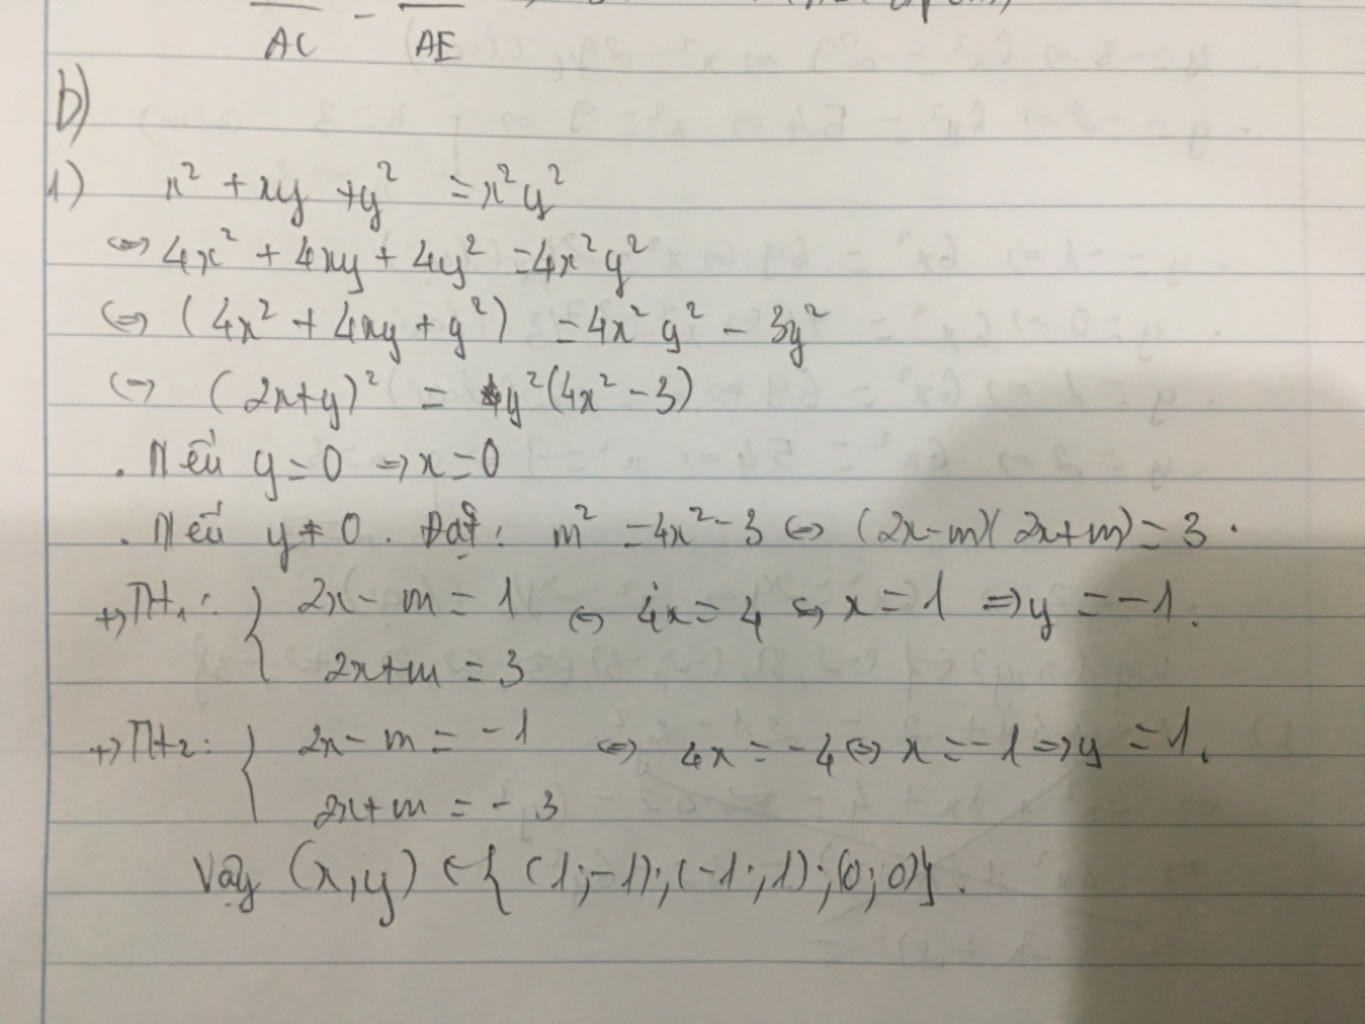 AC - AE
b)
1) x² + xy + y² = x²y²
⇔ 4x² + 4xy + 4y² = 4x²y²
⇔ (4x² + 4xy + y²) = 4x²y² - 3y²
⇔ (2x+y)² = y²(4x² - 3)
. Nếu y = 0 ⇒ x = 0
. Nếu y ≠ 0. Đặt: m² = 4x² - 3 ⇔ (2x-m)(2x+m) = 3.
+) TH1: { 2x - m = 1 ⇔ 4x = 4 ⇔ x = 1 ⇒ y = -1.
2x+m = 3
+) TH2: { 2x - m = -1 ⇔ 4x = -4 ⇔ x = -1 ⇒ y = 1.
2x+m = -3
Vậy (x,y) ∈ { (1;-1); (-1;1); (0;0)}.